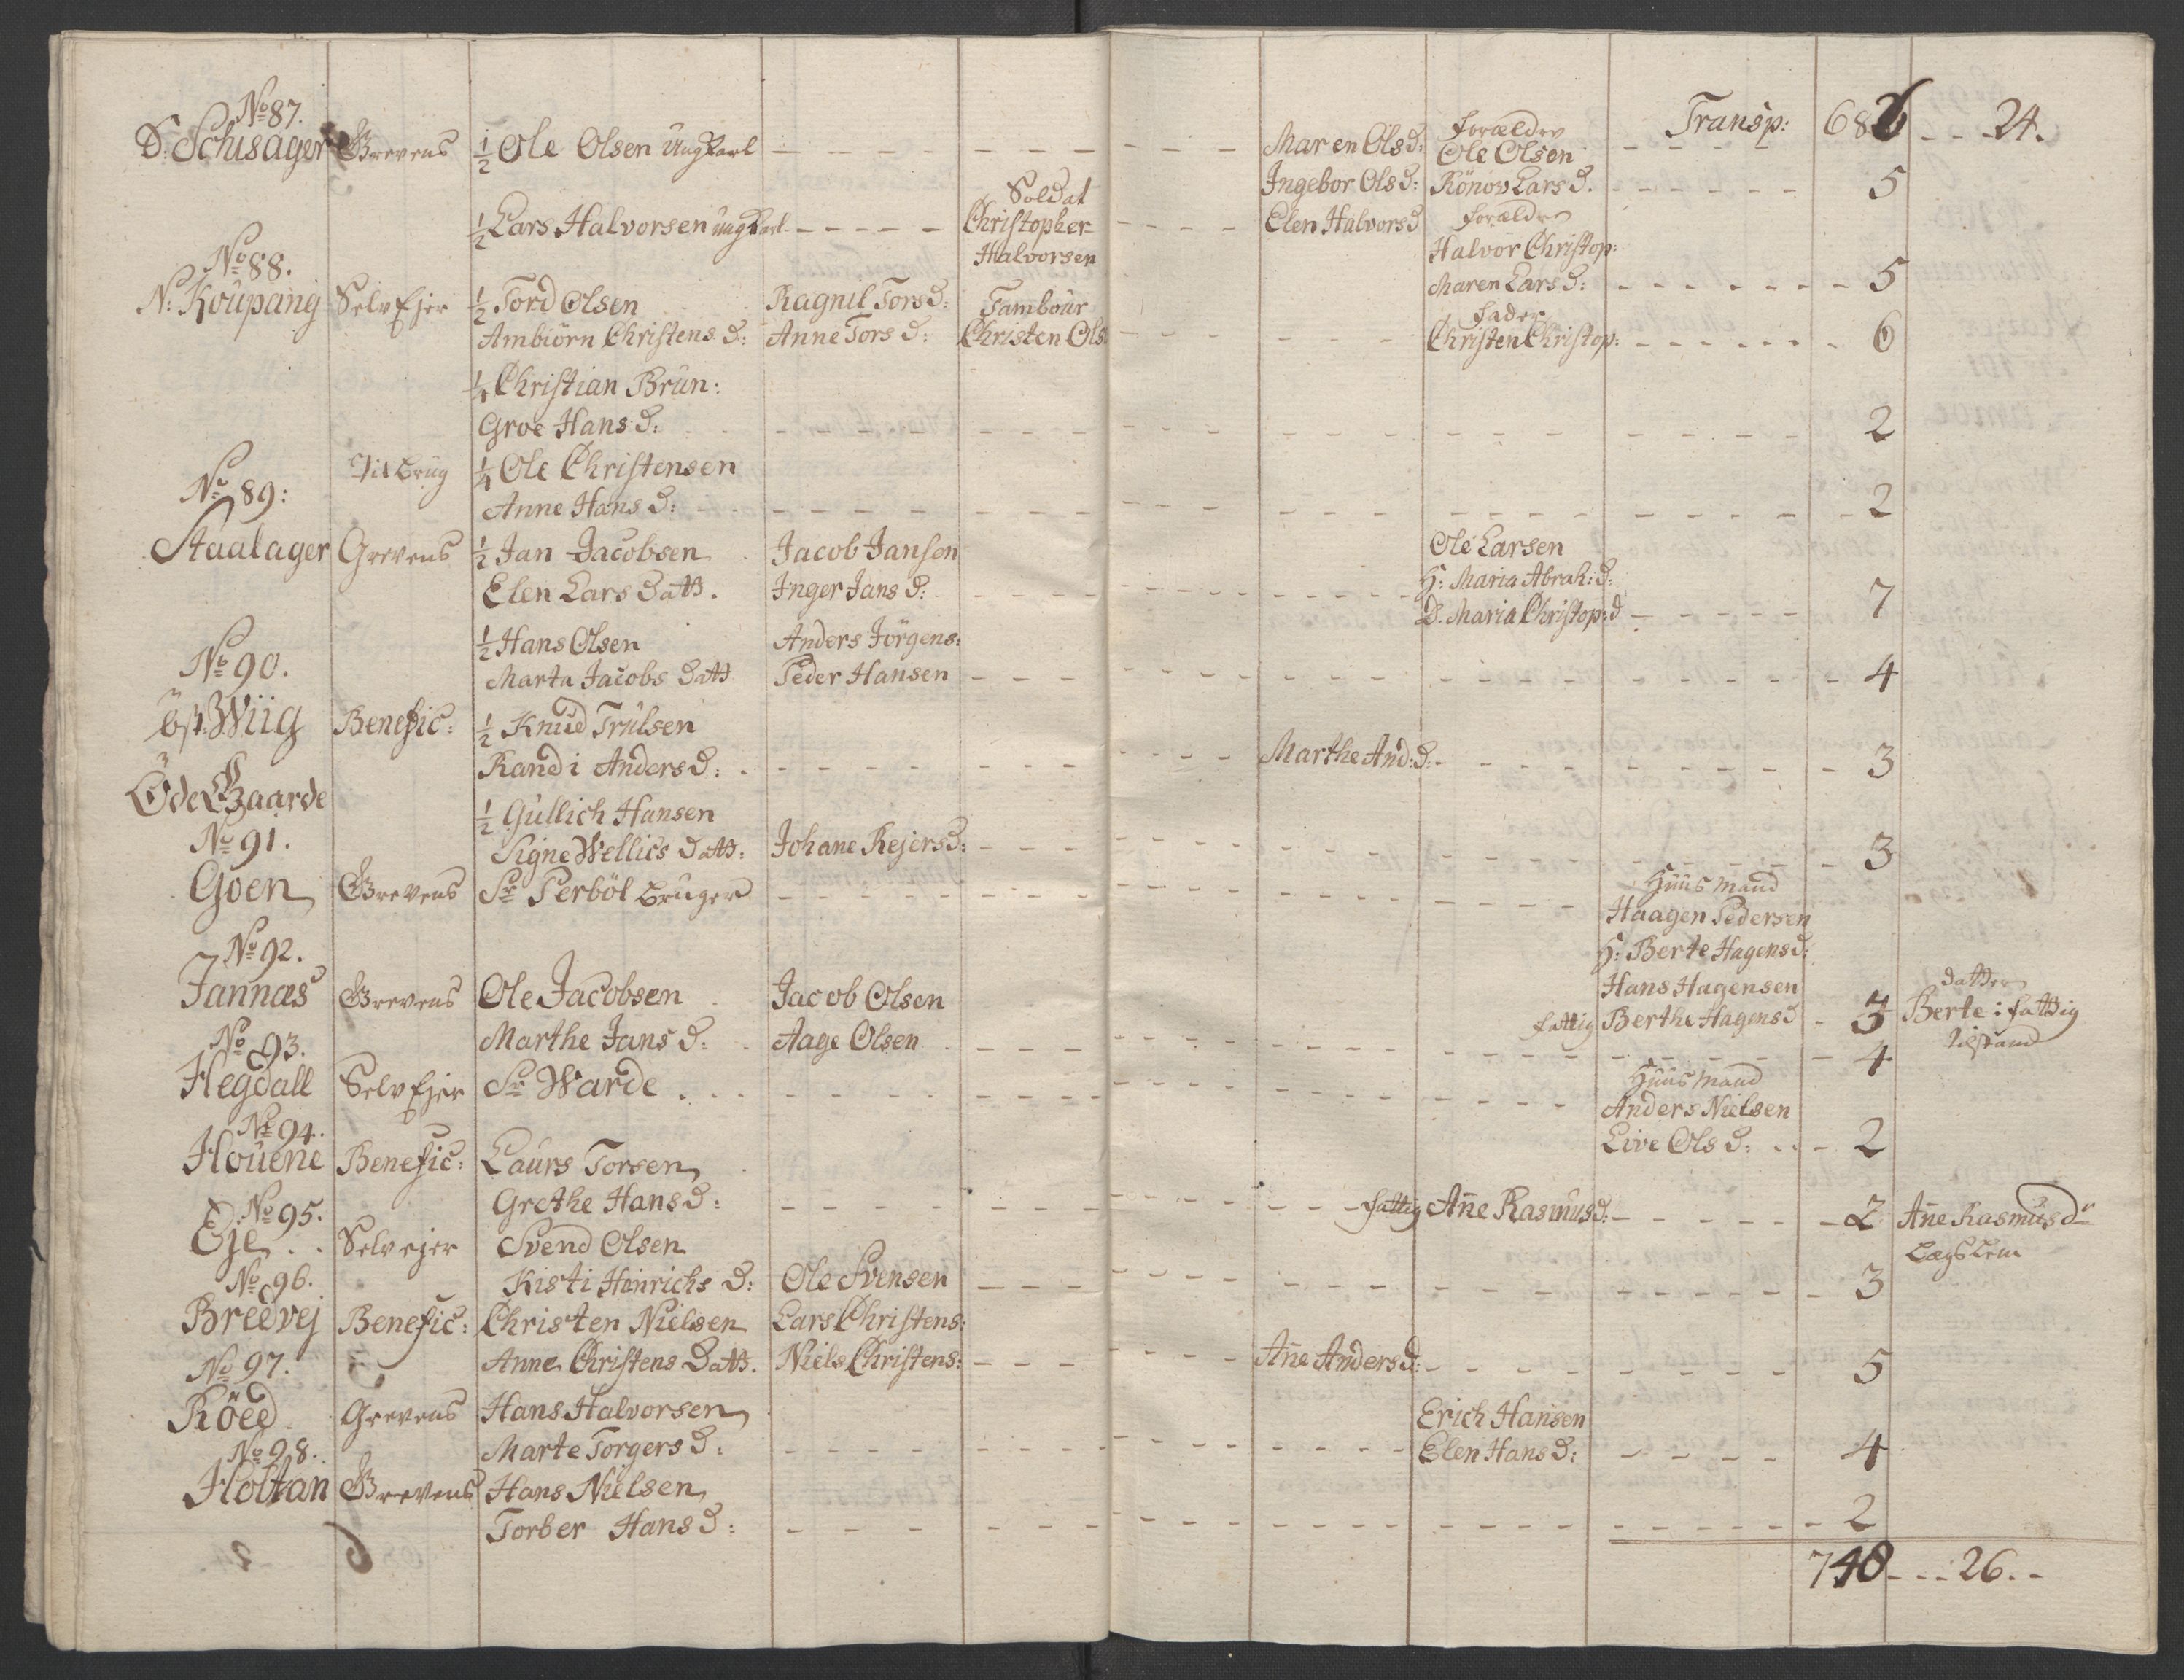 Transp: 686 - - 24.
No 87.
S: Schisager Grevens ½ Ole Olsen Ung Karl - - - Maren Ols d: Forældre
Ole Olsen
Ingebor Ols d: Rönov Lars d. - - - 5
½ Lars Halvorsen ung Karl - - - Soldat
Christopher
Halvorsen - - - Elen Halvors d Forældre
Halvor Christop:
Maren Lars d: - - - 5
No 88.
N: Koupang Selv Ejer ½ Tord Olsen Ragnil Tors d: Tambour Fader
Ambiörn Christens d: Anne Tors d: Christen Ols: - - - Christen Christop: - - - 6
¼ Christian Brun:
Groe Hans d: - - - 2
Til Brug ¼ Ole Christensen
Anne Hans d: - - - 2
No 89:
Staalager Grevens ½ Jan Jacobsen Jacob Jansen Ole Larsen
Elen Lars datt. Inger Jans d: - - - H: Maria Abrah: d:
D. Maria Christop: d - - - 7
½ Hans Olsen Anders Jörgens:
Marta Jacobs datt Peder Hansen - - - 4
No 90.
öst. Wiig Benefic: ½ Knud Trulsen
Randi Anders d: - - - Marthe And: d: - - - 3
Öde Gaarde
½ Gullich Hansen
Signe Wellics datt: Johane Rejers d: - - - 3
No 91.
Goen Grevens Sr Perböl Bruger - - - Huus Mand
Haagen Pedersen
H: Berte Hagens d:
Hans Hagensen
fattig Berthe Hagens d - 3 datter
Berte i fattig
tilstand
No 92.
Jannæs Grevens Ole Jacobsen Jacob Olsen
Marthe Jans d: Aage Olsen - - - 4
No 93.
Hegdall Selv Ejer Sr Warde - - - Huus Mand
Anders Nielsen
Live Ols d: - - - 2
No 94.
Houene Benefic: Laurs Torsen
Grethe Hans d: - - - fattig Ane Rasmus d: - - - 2 Ane Rasmus dr
Lægs Lem
No 95.
Eje Selvejer Svend Olsen
Kisti Hinrichs d: Ole Svensen - - - 3
No 96.
Breevej Benefic: Christen Nielsen Lars Christens:
Anne Christens datt. Niels Christens: - - - Ane Anders d: - - - 5
No 97.
Röed Grevens Hans Halvorsen Erich Hansen
Marte Torgers d: - - - Elen Hans d: - - - 4
No 98.
Holtan Grevens Hans Nielsen
Torber Hans d: - - - 2
748 - - - 26.